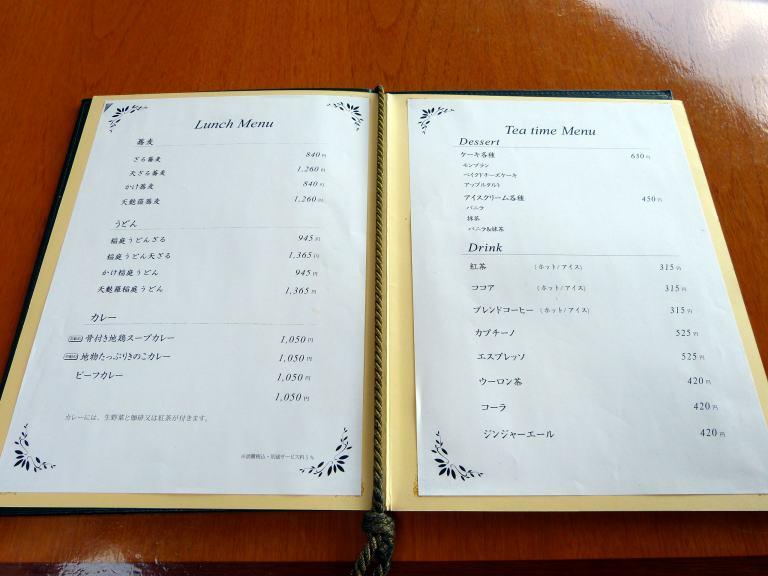 Lunch Menu
蕎麦
ざる蕎麦 840円
天ざる蕎麦 1,260円
かけ蕎麦 840円
天麩羅蕎麦 1,260円
うどん
稲庭うどんざる 945円
稲庭うどん天ざる 1,365円
かけ稲庭うどん 945円
天麩羅稲庭うどん 1,365円
カレー
骨付き地鶏スープカレー 1,050円
地物たっぷりきのこカレー 1,050円
ビーフカレー 1,050円
1,050円
カレーには、生野菜と珈琲又は紅茶が付きます。
※消費税込・別途サービス料5%
Tea time Menu
Dessert
ケーキ各種 630円
モンブラン
ベイクドチーズケーキ
アップルタルト
アイスクリーム各種 450円
バニラ
抹茶
バニラ&抹茶
Drink
紅茶 (ホット/アイス) 315円
ココア (ホット/アイス) 315円
ブレンドコーヒー (ホット/アイス) 315円
カプチーノ 525円
エスプレッソ 525円
ウーロン茶 420円
コーラ 420円
ジンジャーエール 420円